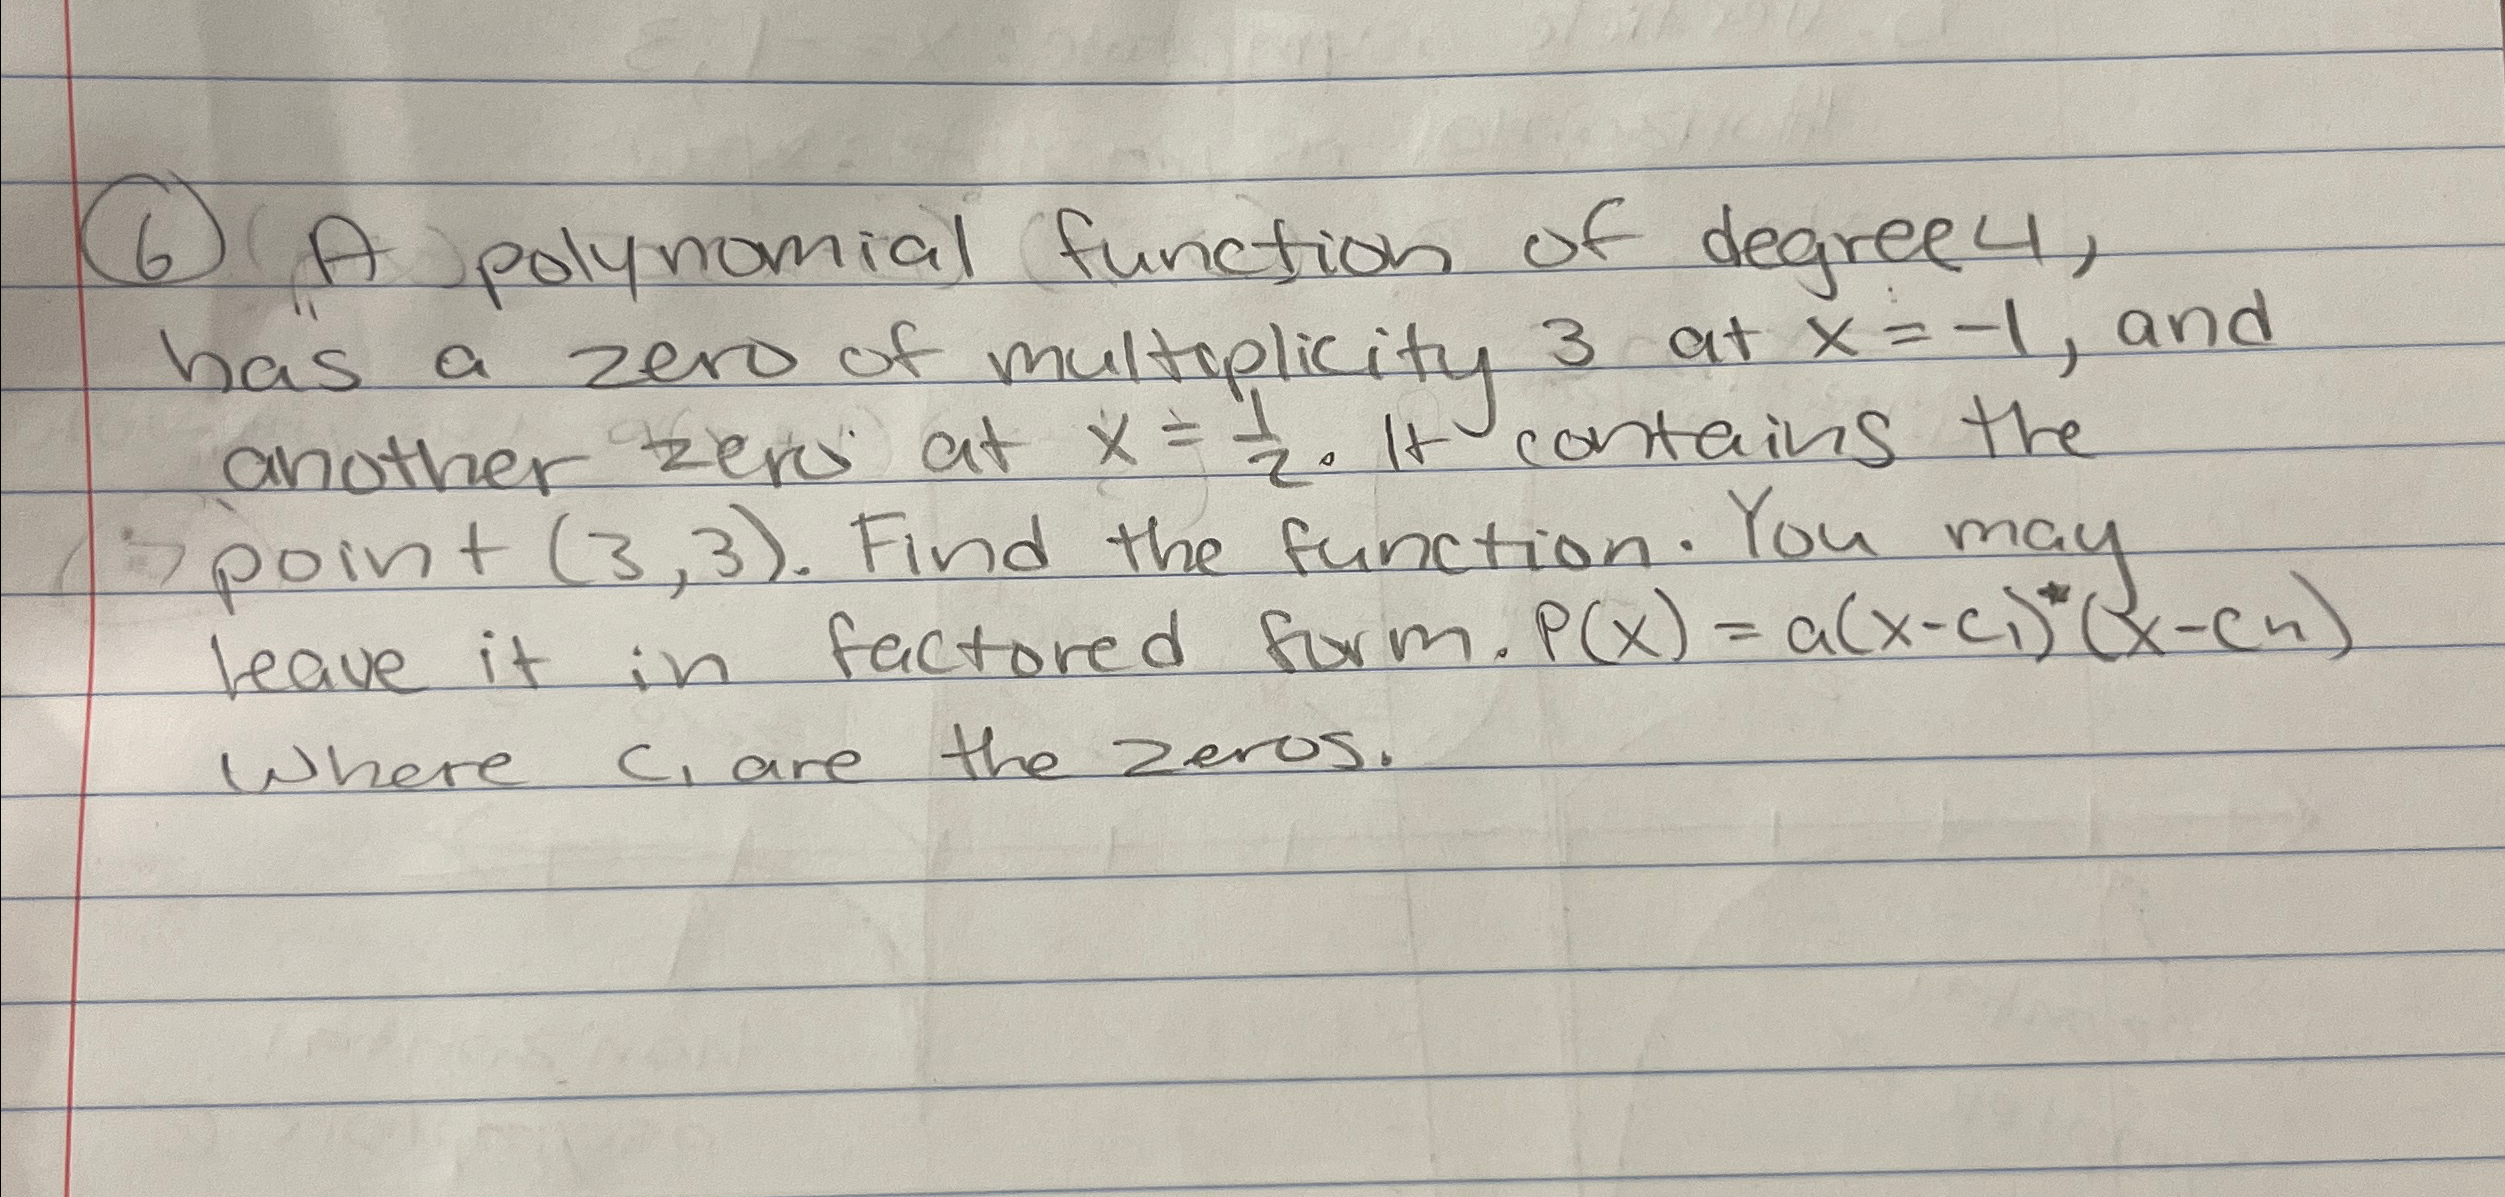 6 A polynomial function of degree 4,
has a zero of multiplicity 3 at x = -1, and
another zero at x = 1/2. It contains the
point (3,3). Find the function. You may
leave it in factored form. P(x) = a(x-c₁)*(x-cn)
where c₁ are the zeros.